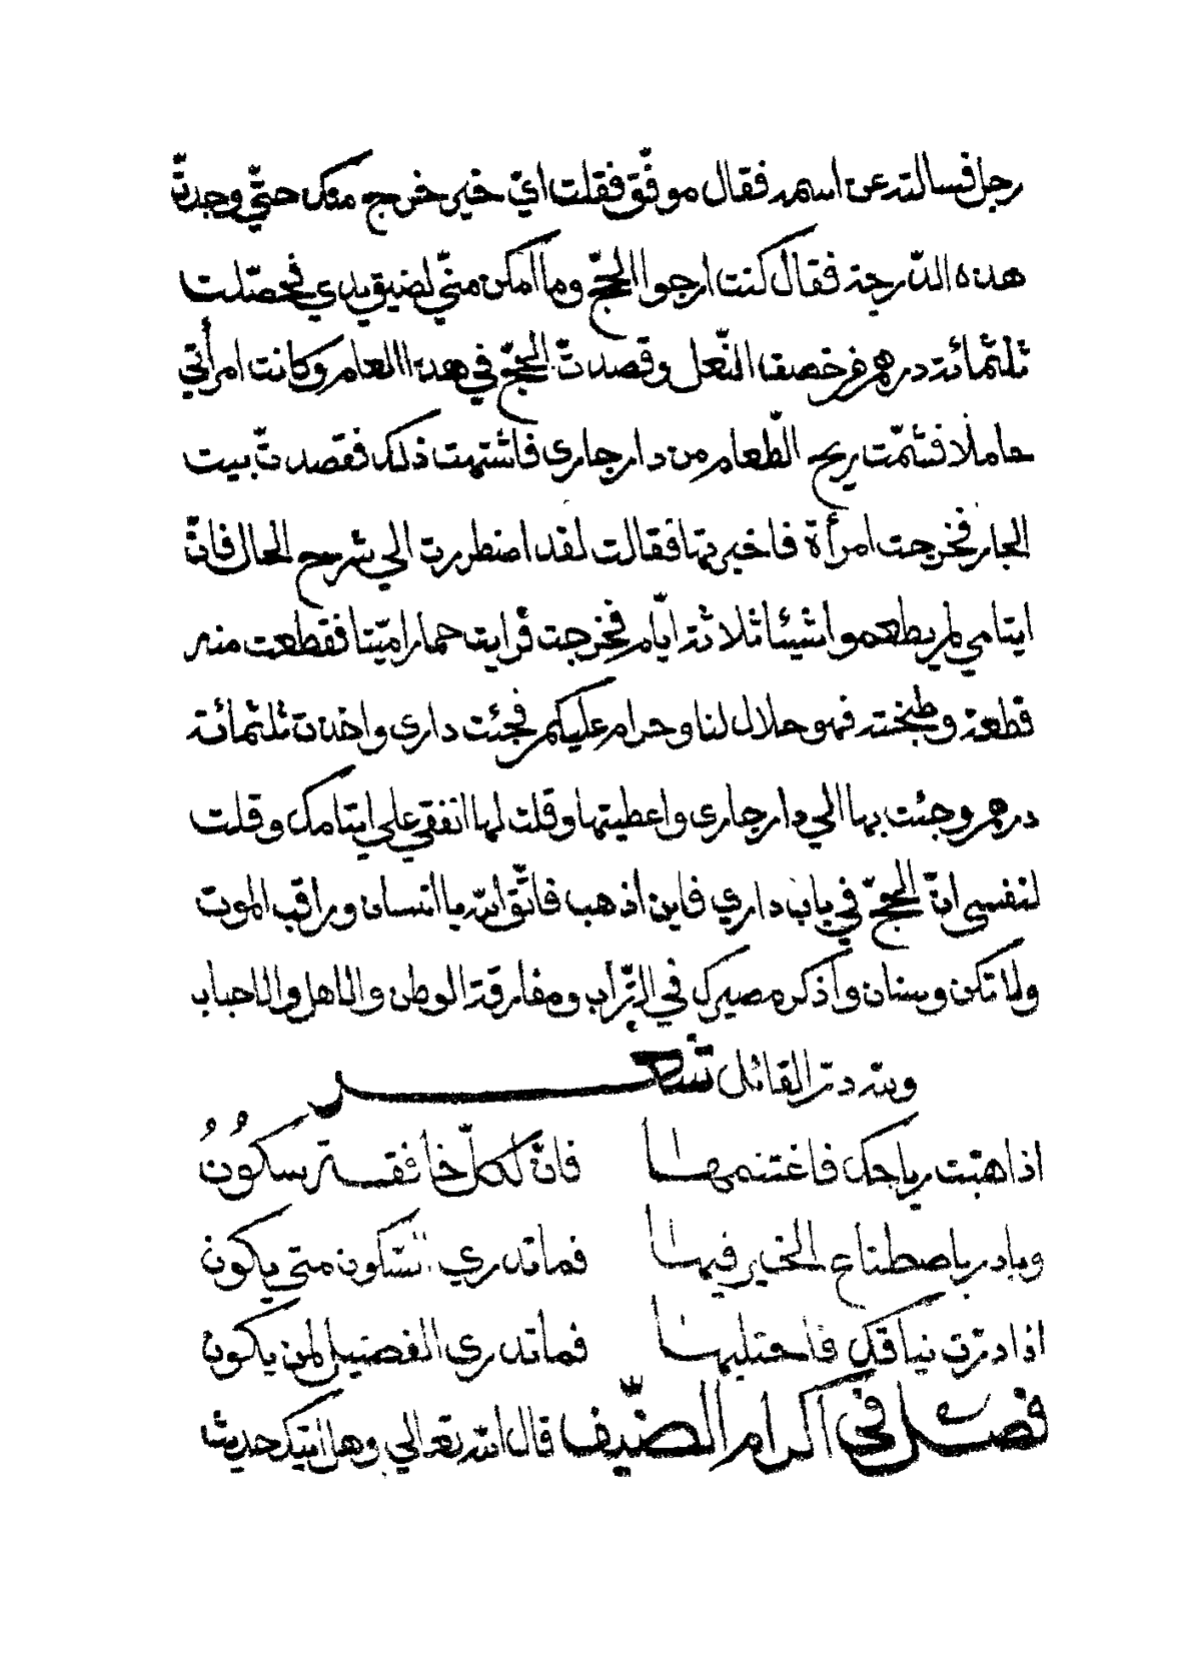 رجل فسالته عن اسمه فقال موفّق فقلت ايّ خير خرج منك حتّي وجدتّ
هذه الدّرجة فقال كنت ارجوا الحجّ وما امكن منّي لضيق يدي فحصّلت
ثلثمائة درهم فرخصفا النّعل وقصدتّ الحجّ في هذا العام وكانت امرأتي
حاملا فشمّت ريح الّطعام من دار جاري فاشتهت ذلك فقصدتّ بيت
الجار فخرجت امرأة فاخبرتها فقالت لقد اضطررت الي شرح الحال فانّ
ايتامي لم يطعموا شيئا ثلاثة ايّام فخرجت فرايت حمارا ميّتا فقطعت منه
قطعة وطبخته فهو حلال لنا وحرام عليكم فجئت داري واخذت ثلثمائة
درهم وجئت بها الي دار جاري واعطيتها وقلت لها انفقي علي ايتامك وقلت
لنفسي انّ الحجّ في باب داري فاين اذهب فاتّق الله يا انسان وراقب الموت
ولا تكن وسنان واذكر مصيرك في التّراب ومفارقة الوطن والاهل والاحباب
ولله درّ القائل شعر
اذا هبّت رياحك فاغتنمها فانّ لكلّ خافقة سكُونُ
وبادر باصطناع الخير فيها فما تدري السّكون متي يكون
اذا درّت نياقك فاحتلبها فما تدري الفصيل لمن يكون
فصل في اكرام الضّيف قال الله تعالي وهل اتيك حديث